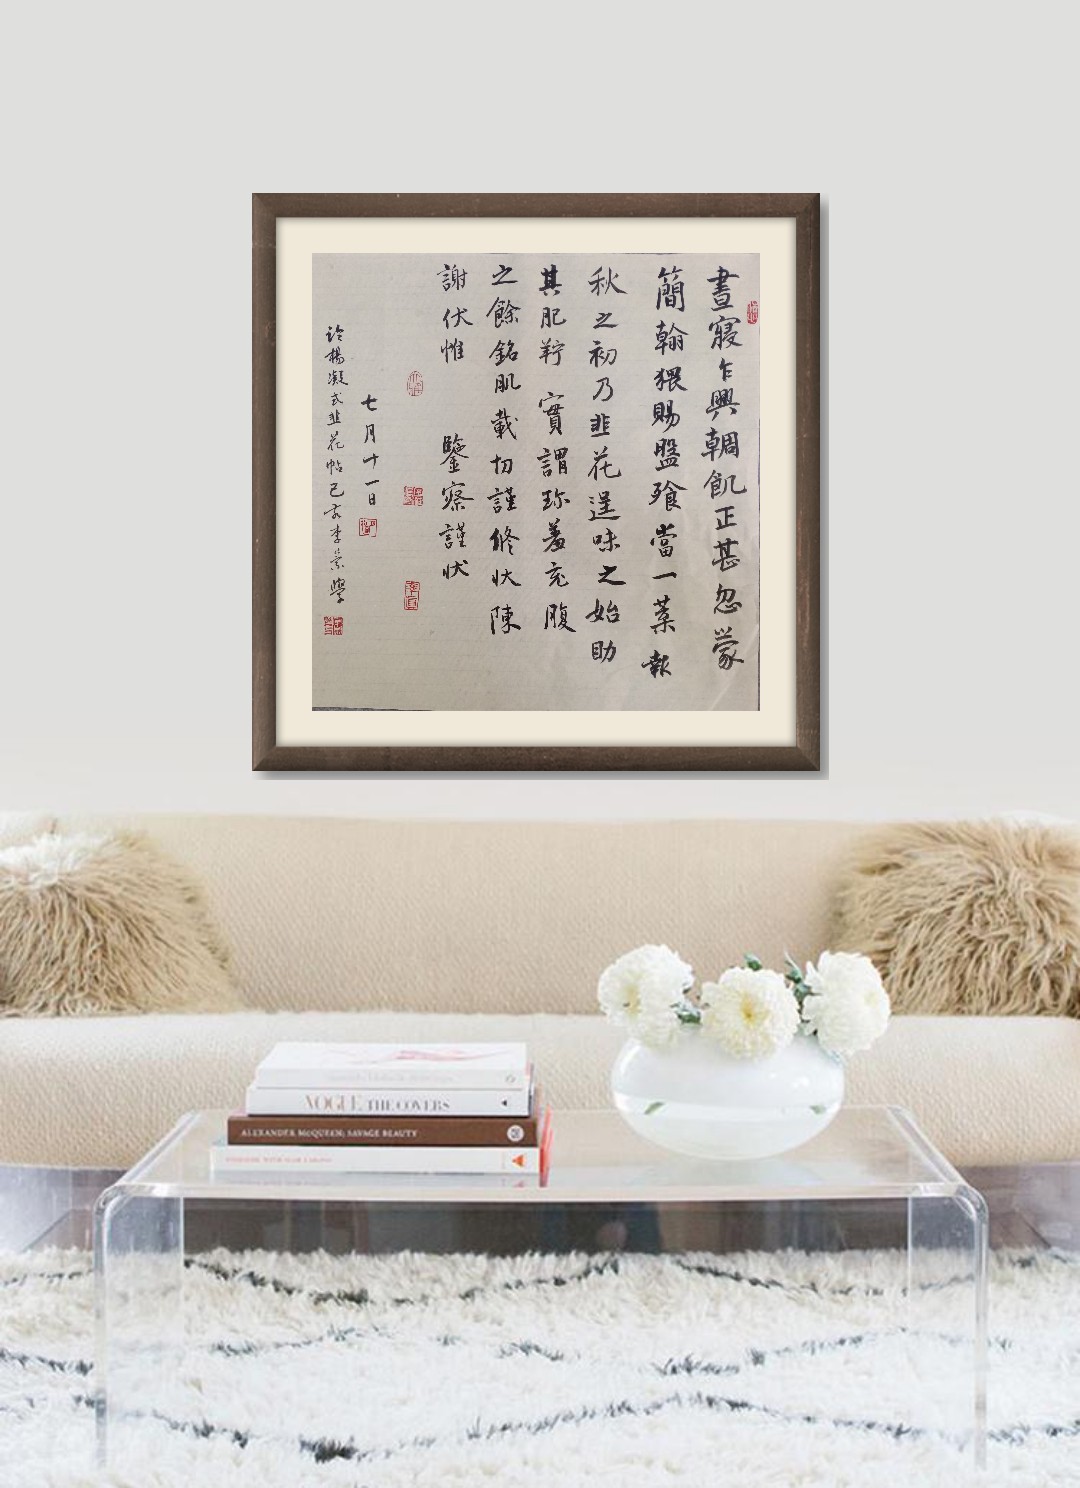 晝寢乍興輖飢正甚忽蒙
簡翰猥賜盤飧當一葉報
秋之初乃韭花逞味之始助
其肥羜實謂珎羞充腹
之餘銘肌載切謹修狀陳
謝伏惟鑒察謹狀
七月十一日
楊凝式韭花帖己亥李崇學
VOGUE THE COVERS
ALEXANDER McQUEEN: SAVAGE BEAUTY